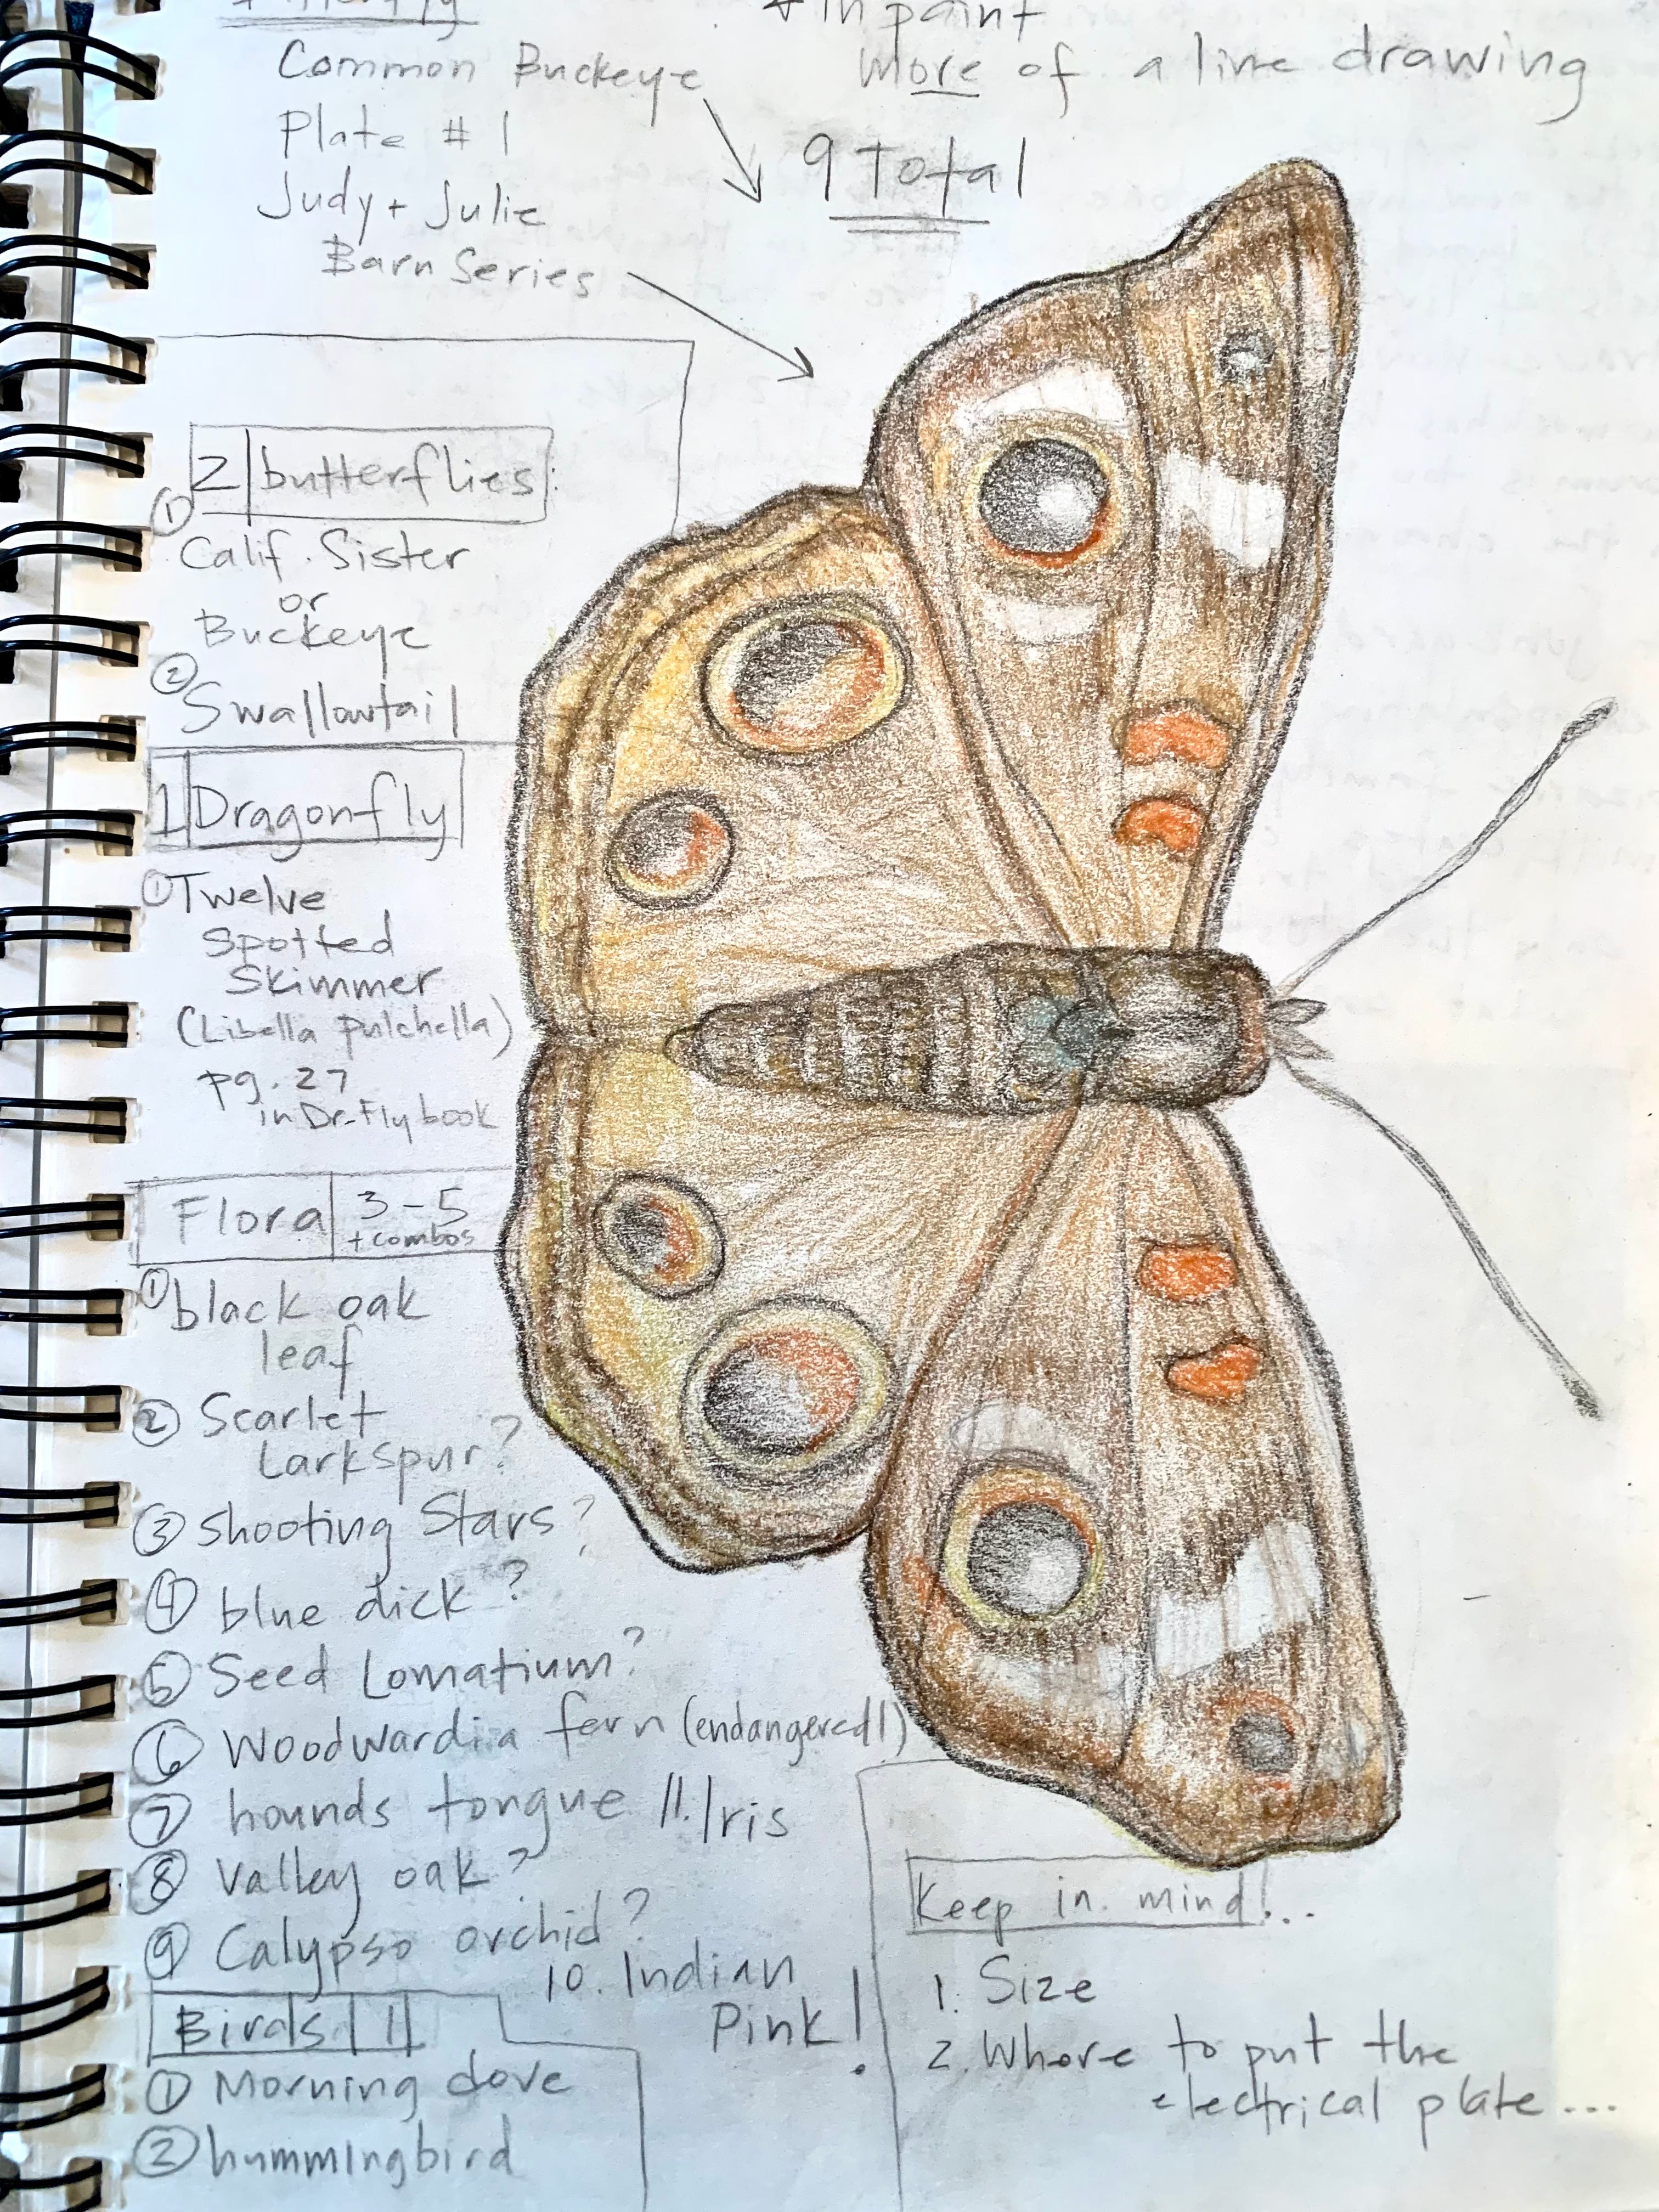 + in paint
Common Buckeye
More of a line drawing
Plate # 1
9 Total
Judy + Julie
Barn Series
2 butterflies:
① Calif. Sister
or
Buckeye
② Swallowtail
1 Dragonfly
① Twelve
Spotted
Skimmer
(Libella pulchella)
pg. 27
in Dr-Fly book
Flora 3-5
+ combos
① black oak
leaf
② Scarlet
Larkspur?
③ Shooting Stars?
④ blue dick?
⑤ Seed Lomatium?
⑥ Woodwardia fern (endangered!)
⑦ hounds tongue 11. Iris
⑧ Valley oak?
⑨ Calypso orchid?
10. Indian
Pink!
Birds 1
① Morning dove
② hummingbird
Keep in mind!...
1. Size
2. Where to put the
electrical plate...